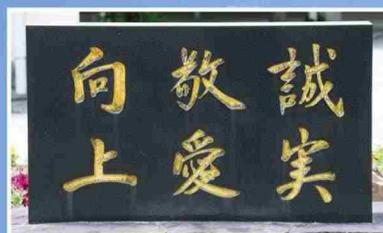 誠実
敬愛
向上